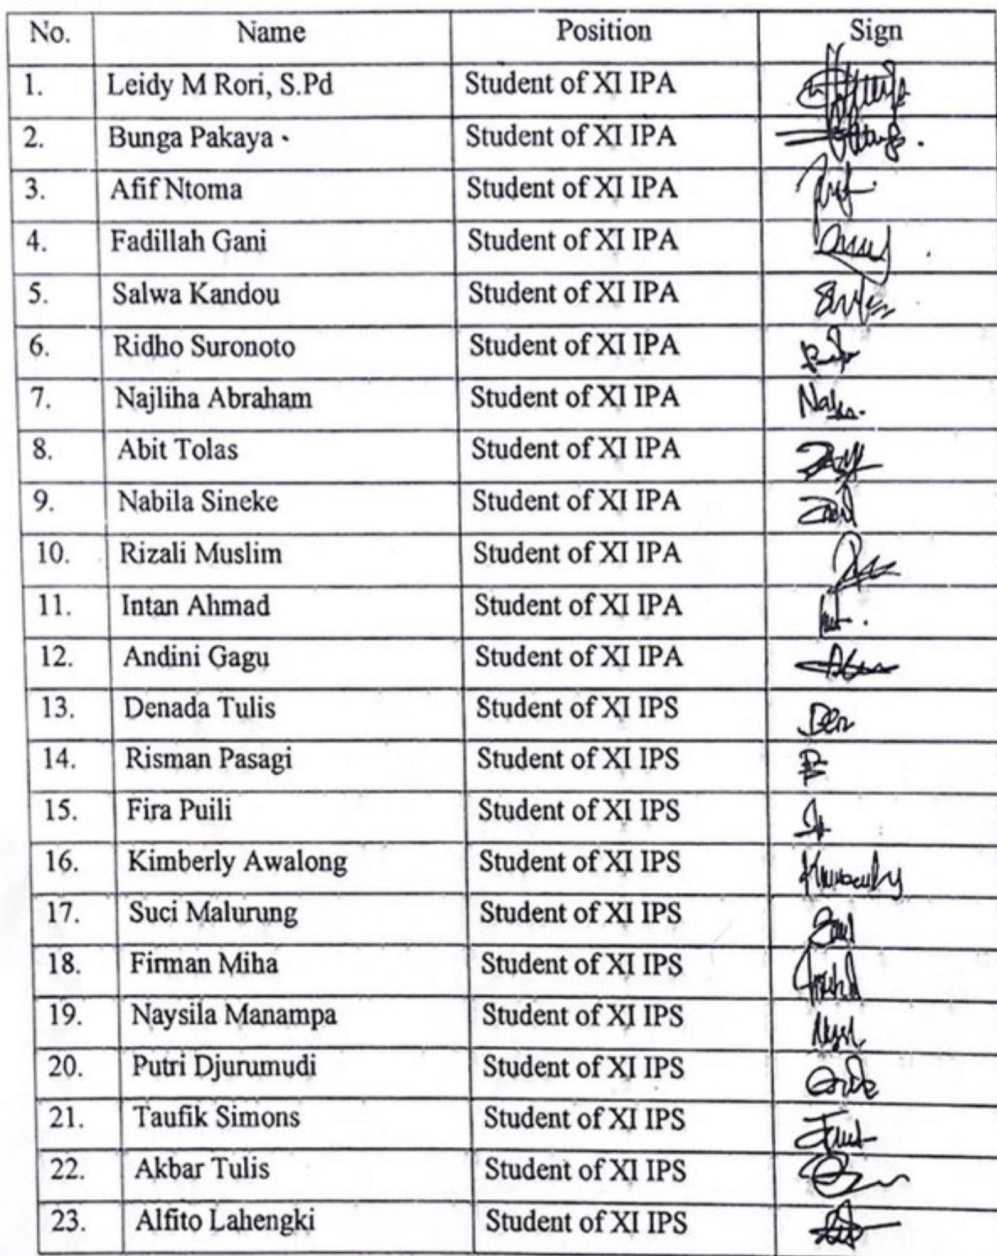 No. Name Position Sign
1. Leidy M Rori, S.Pd Student of XI IPA
2. Bunga Pakaya Student of XI IPA
3. Afif Ntoma Student of XI IPA
4. Fadillah Gani Student of XI IPA
5. Salwa Kandou Student of XI IPA
6. Ridho Suronoto Student of XI IPA
7. Najliha Abraham Student of XI IPA
8. Abit Tolas Student of XI IPA
9. Nabila Sineke Student of XI IPA
10. Rizali Muslim Student of XI IPA
11. Intan Ahmad Student of XI IPA
12. Andini Gagu Student of XI IPA
13. Denada Tulis Student of XI IPS Den
14. Risman Pasagi Student of XI IPS
15. Fira Puili Student of XI IPS
16. Kimberly Awalong Student of XI IPS
17. Suci Malurung Student of XI IPS
18. Firman Miha Student of XI IPS
19. Naysila Manampa Student of XI IPS
20. Putri Djurumudi Student of XI IPS
21. Taufik Simons Student of XI IPS
22. Akbar Tulis Student of XI IPS
23. Alfito Lahengki Student of XI IPS